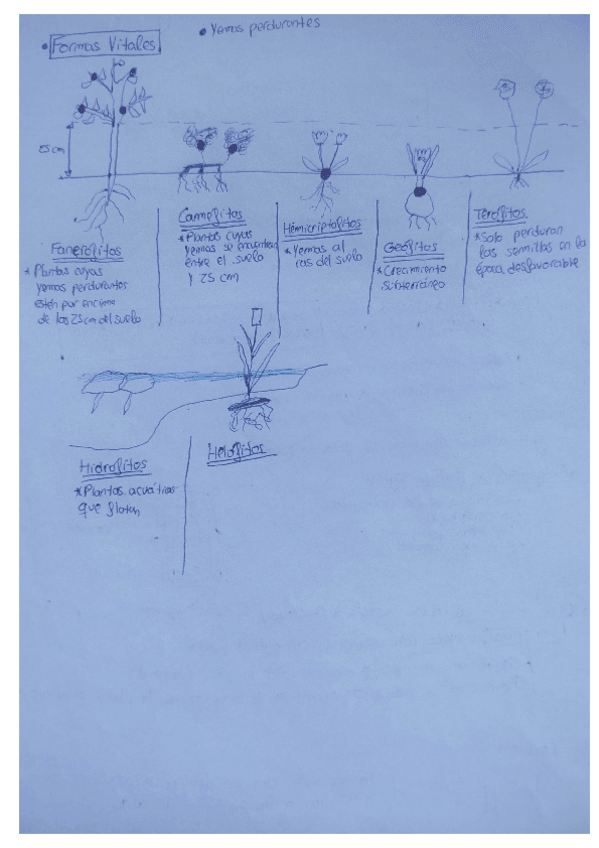 • Formas Vitales
• Yemas perdurantes
25 cm
Fanerófitos
* Plantas cuyas
yemas perdurantes
estén por encima
de los 25 cm del suelo
Camefitos
* Plantas cuyas
yemas se encuentran
entre el suelo
y 25 cm
Hemicriptofitos
* Yemas al
ras del suelo
Geófitos
* Crecimiento
subterráneo
Terófitos
* Solo perduran
las semillas en la
época desfavorable
Hidrofitos
* Plantas acuáticas
que flotan
Helofitos